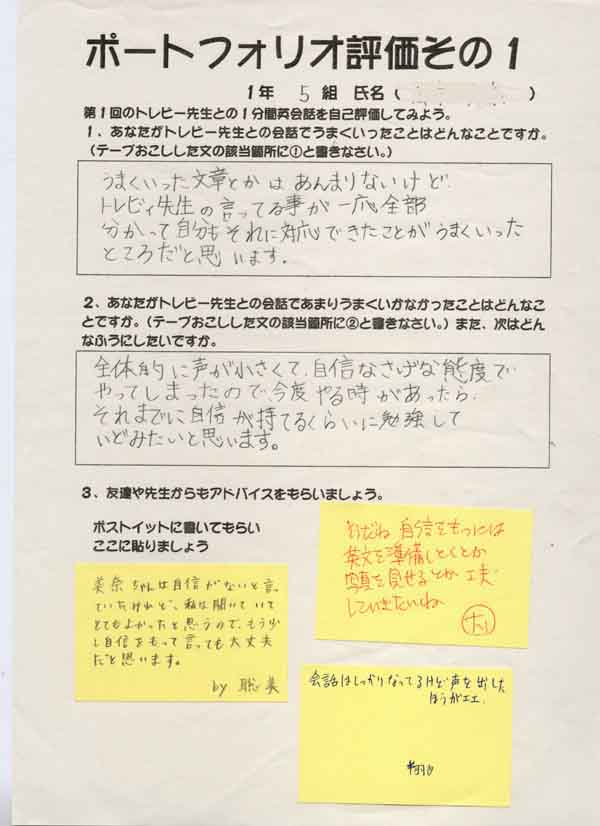 ポートフォリオ評価その1
1年 5組 氏名( )
第1回のトレビー先生との1分間英会話を自己評価してみよう。
1、あなたがトレビー先生との会話でうまくいったことはどんなことですか。
(テープおこしした文の該当箇所に①と書きなさい。)
うまくいった文章とかは あんまりないけど、
トレビィ先生の言ってる事が 一応全部
分かって自分もそれに対応できたことがうまくいった
ところだと思います。
2、あなたがトレビー先生との会話であまりうまくいかなかったことはどんなこ
とですか。(テープおこしした文の該当箇所に②と書きなさい。)また、次はどん
なふうにしたいですか。
全体的に声が小さくて、自信なさげな態度で
やってしまったので、今度やる時があったら、
それまでに自信が持てるくらいに勉強して
いどみたいと思います。
3、友達や先生からもアドバイスをもらいましょう。
ポストイットに書いてもらい
ここに貼りましょう
そだね 自信をもつには
英文を準備しとくとか
写真を見せるとか 工夫
していきたいね
美奈ちゃんは自信がないと言っ
ていたけれど、私は聞いていて
とてもよかったと思うので、もう少
し自信をもって言っても大丈夫
だと思います。
by 聡美
会話はしっかりなってるけど声を出した
ほうがエエ.